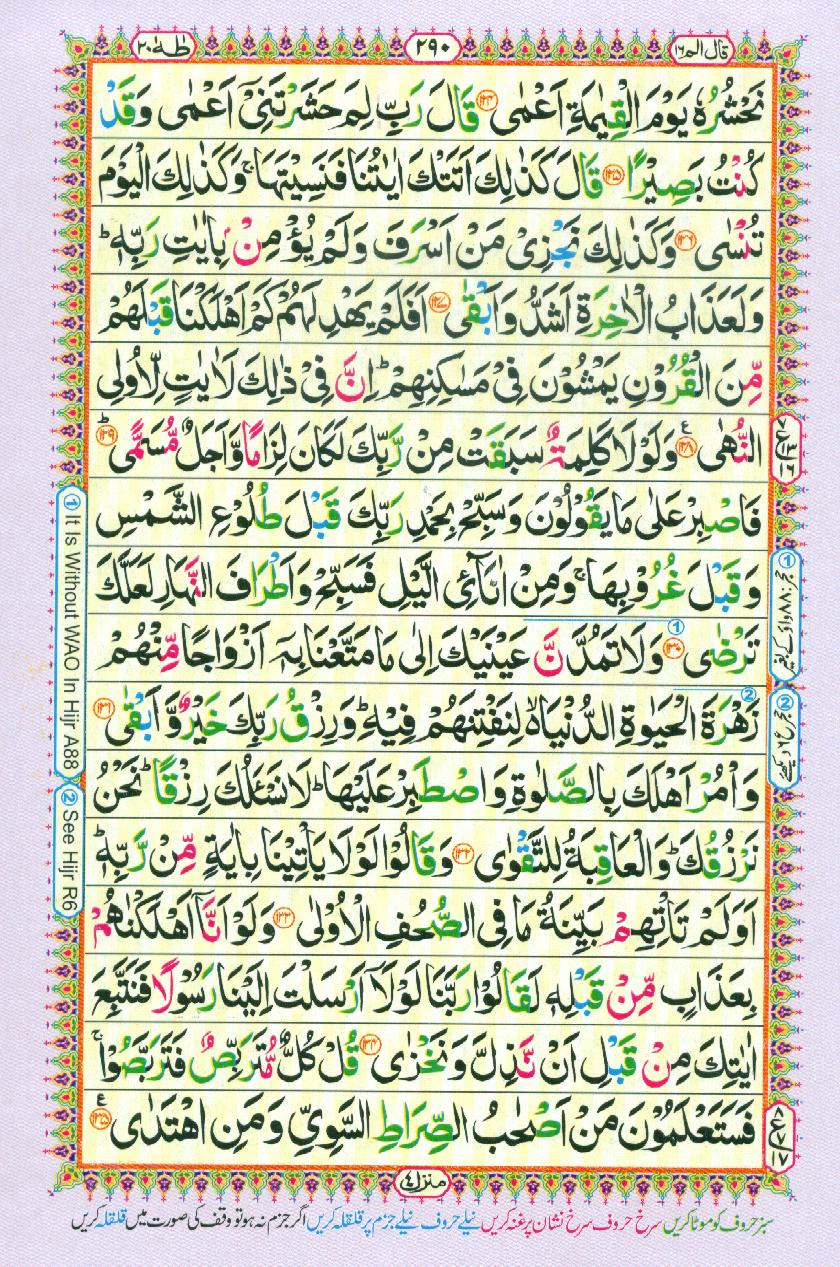 قال الم ١٦ ٢٩٠ طٰهٰ ٢٠
نَحْشُرُهٗ يَوْمَ الْقِيٰمَةِ اَعْمٰى ۝١٢٤ قَالَ رَبِّ لِمَ حَشَرْتَنِيْۤ اَعْمٰى وَقَدْ
كُنْتُ بَصِيْرًا ۝١٢٥ قَالَ كَذٰلِكَ اَتَتْكَ اٰيٰتُنَا فَنَسِيْتَهَا ۚ وَكَذٰلِكَ الْيَوْمَ
تُنْسٰى ۝١٢٦ وَكَذٰلِكَ نَجْزِيْ مَنْ اَسْرَفَ وَلَمْ يُؤْمِنْۢ بِاٰيٰتِ رَبِّهٖ ؕ
وَلَعَذَابُ الْاٰخِرَةِ اَشَدُّ وَاَبْقٰى ۝١٢٧ اَفَلَمْ يَهْدِ لَهُمْ كَمْ اَهْلَكْنَا قَبْلَهُمْ
مِّنَ الْقُرُوْنِ يَمْشُوْنَ فِيْ مَسٰكِنِهِمْ ؕ اِنَّ فِيْ ذٰلِكَ لَاٰيٰتٍ لِّاُولِي
النُّهٰى ۝١٢٨ ع وَلَوْلَا كَلِمَةٌ سَبَقَتْ مِنْ رَّبِّكَ لَكَانَ لِزَامًا وَّاَجَلٌ مُّسَمًّى ؕ ۝١٢٩
فَاصْبِرْ عَلٰى مَا يَقُوْلُوْنَ وَسَبِّحْ بِحَمْدِ رَبِّكَ قَبْلَ طُلُوْعِ الشَّمْسِ
وَقَبْلَ غُرُوْبِهَا ۚ وَمِنْ اٰنَآئِ الَّيْلِ فَسَبِّحْ وَاَطْرَافَ النَّهَارِ لَعَلَّكَ
تَرْضٰى ۝١٣٠ وَلَا تَمُدَّنَّ عَيْنَيْكَ اِلٰى مَا مَتَّعْنَا بِهٖۤ اَزْوَاجًا مِّنْهُمْ
زَهْرَةَ الْحَيٰوةِ الدُّنْيَا ۙ لِنَفْتِنَهُمْ فِيْهِ ؕ وَرِزْقُ رَبِّكَ خَيْرٌ وَّاَبْقٰى ۝١٣١
وَاْمُرْ اَهْلَكَ بِالصَّلٰوةِ وَاصْطَبِرْ عَلَيْهَا ؕ لَا نَسْـَٔلُكَ رِزْقًا ؕ نَحْنُ
نَرْزُقُكَ ؕ وَالْعَاقِبَةُ لِلتَّقْوٰى ۝١٣٢ وَقَالُوْا لَوْلَا يَاْتِيْنَا بِاٰيَةٍ مِّنْ رَّبِّهٖ ؕ
اَوَلَمْ تَاْتِهِمْ بَيِّنَةُ مَا فِي الصُّحُفِ الْاُوْلٰى ۝١٣٣ وَلَوْ اَنَّاۤ اَهْلَكْنٰهُمْ
بِعَذَابٍ مِّنْ قَبْلِهٖ لَقَالُوْا رَبَّنَا لَوْلَاۤ اَرْسَلْتَ اِلَيْنَا رَسُوْلًا فَنَتَّبِعَ
اٰيٰتِكَ مِنْ قَبْلِ اَنْ نَّذِلَّ وَنَخْزٰى ۝١٣٤ قُلْ كُلٌّ مُّتَرَبِّصٌ فَتَرَبَّصُوْا ۚ
فَسَتَعْلَمُوْنَ مَنْ اَصْحٰبُ الصِّرَاطِ السَّوِيِّ وَمَنِ اهْتَدٰى ۝١٣٥ ع
منزل ٤
سبز حروف کو موٹا کریں سرخ حروف سرخ نشان پر غنہ کریں نیلے حروف نیلے جزم پر قلقلہ کریں اگر جزم نہ ہو تو وقف کی صورت میں قلقلہ کریں
① It Is Without WAO In Hijr A88
② See Hijr R6
① حجر ٨٨ واؤ کے بغیر
② حجر ع ٦ دیکھئے
٧ ع ١٣ ١٦
٨ ع ٧ ١٧